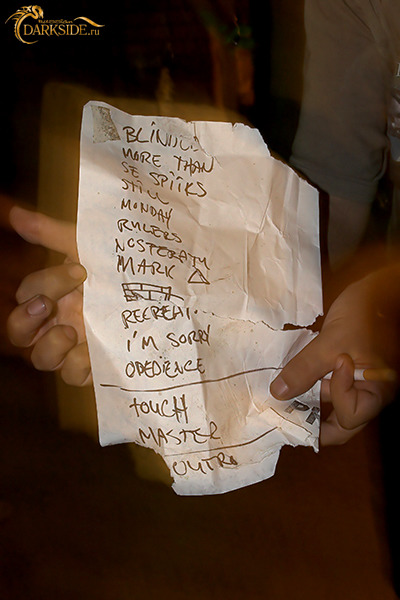 DARKSIDE.ru
BLIND...
MORE THAN
SE SPIIKS
STILL
MONDAY
RULERS
NOSTERATU
MARK
RECREAI..
i'M SORRY
OBEDIENCE
TOUCH
MASTER
OUTRO